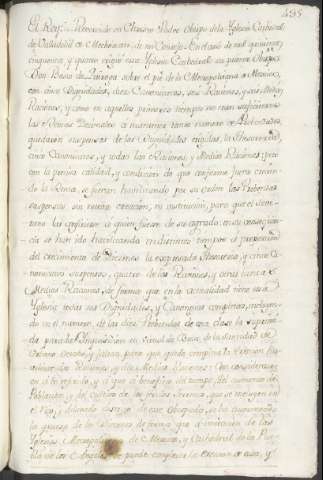 495
El Rey. Reverendo en Christo Padre Obispo de la Iglesia Catedral
de Valladolid de Mechoacan, de mi Consejo. En el año de mil quinientos
cinquenta y quatro erigió esa Iglesia Cathedral su primer Obispo
Don Vasco de Quiroga sobre el pié de la Metropolitana de Mexico,
con cinco Dignidades, diez Canonicatos, seis Raciones, y seis Medias
Raciones, y como en aquellos primeros tiempos no eran suficientes
las rentas Decimales a mantener tanto numero de Prebendados,
quedaron suspensas de las Dignidades erigidas, la Thesoreria,
cinco Canonicatos, y todas las Raciones, y Medias Raciones; pero
con la precisa calidad, y condicion de que conforme fuera creciendo
la Renta, se fueran habilitando por su orden las Prebendas
suspensas sin nueva creacion, ni institucion, para que el
las confiriese a quien fuese de su agrado: en su consequencia
se han ido habilitando en distintos tiempos a proporcion
del crecimiento de Diezmos la expresada Thesoreria, y cinco Canonicatos
suspensos, quatro de las Raciones, y otras tantas
Medias Raciones, de forma que en la actualidad tiene esa
Iglesia todas sus Dignidades, y Canongias completas, incluyendo
en el numero de las diez Prebendas de esa clase la suprimida
para la Inquisicion en virtud de Bula de la Santidad de
Urbano Octavo, y faltan para que quede completa la Ereccion
dos Raciones, y dos Medias Raciones: Con consideracion
a lo referido, y a que a beneficio del tiempo, del aumento de
Poblacion, y del cultivo de las fertiles tierras, que se incluyen en
el vasto, y dilatado distrito de ese Obispado, se ha aumentado
la gruesa de los Diezmos de forma que a imitacion de las
Iglesias Metropolitana de Mexico, y Cathedral de la Puebla
de los Angeles se puede completar la Ereccion de esa, y